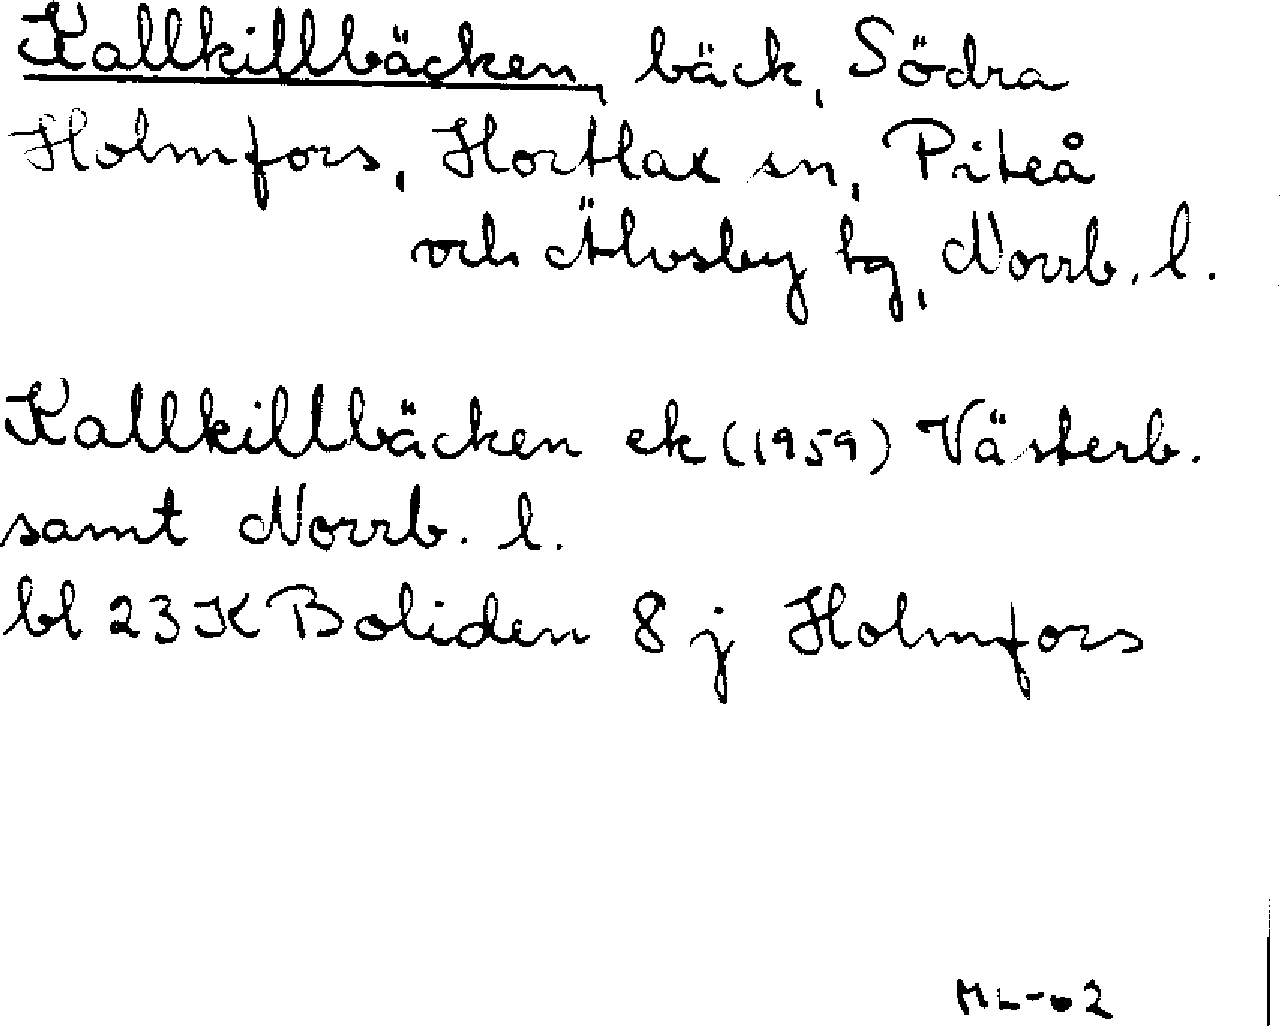 Kallkillbäcken, bäck, Södra
Holmfors, Hortlax sn, Piteå
och Älvsby tg, Norrb. l.
Kallkillbäcken ek (1959) Västerb.
samt Norrb. l.
bl 23K Boliden 8 j Holmfors
ML-02